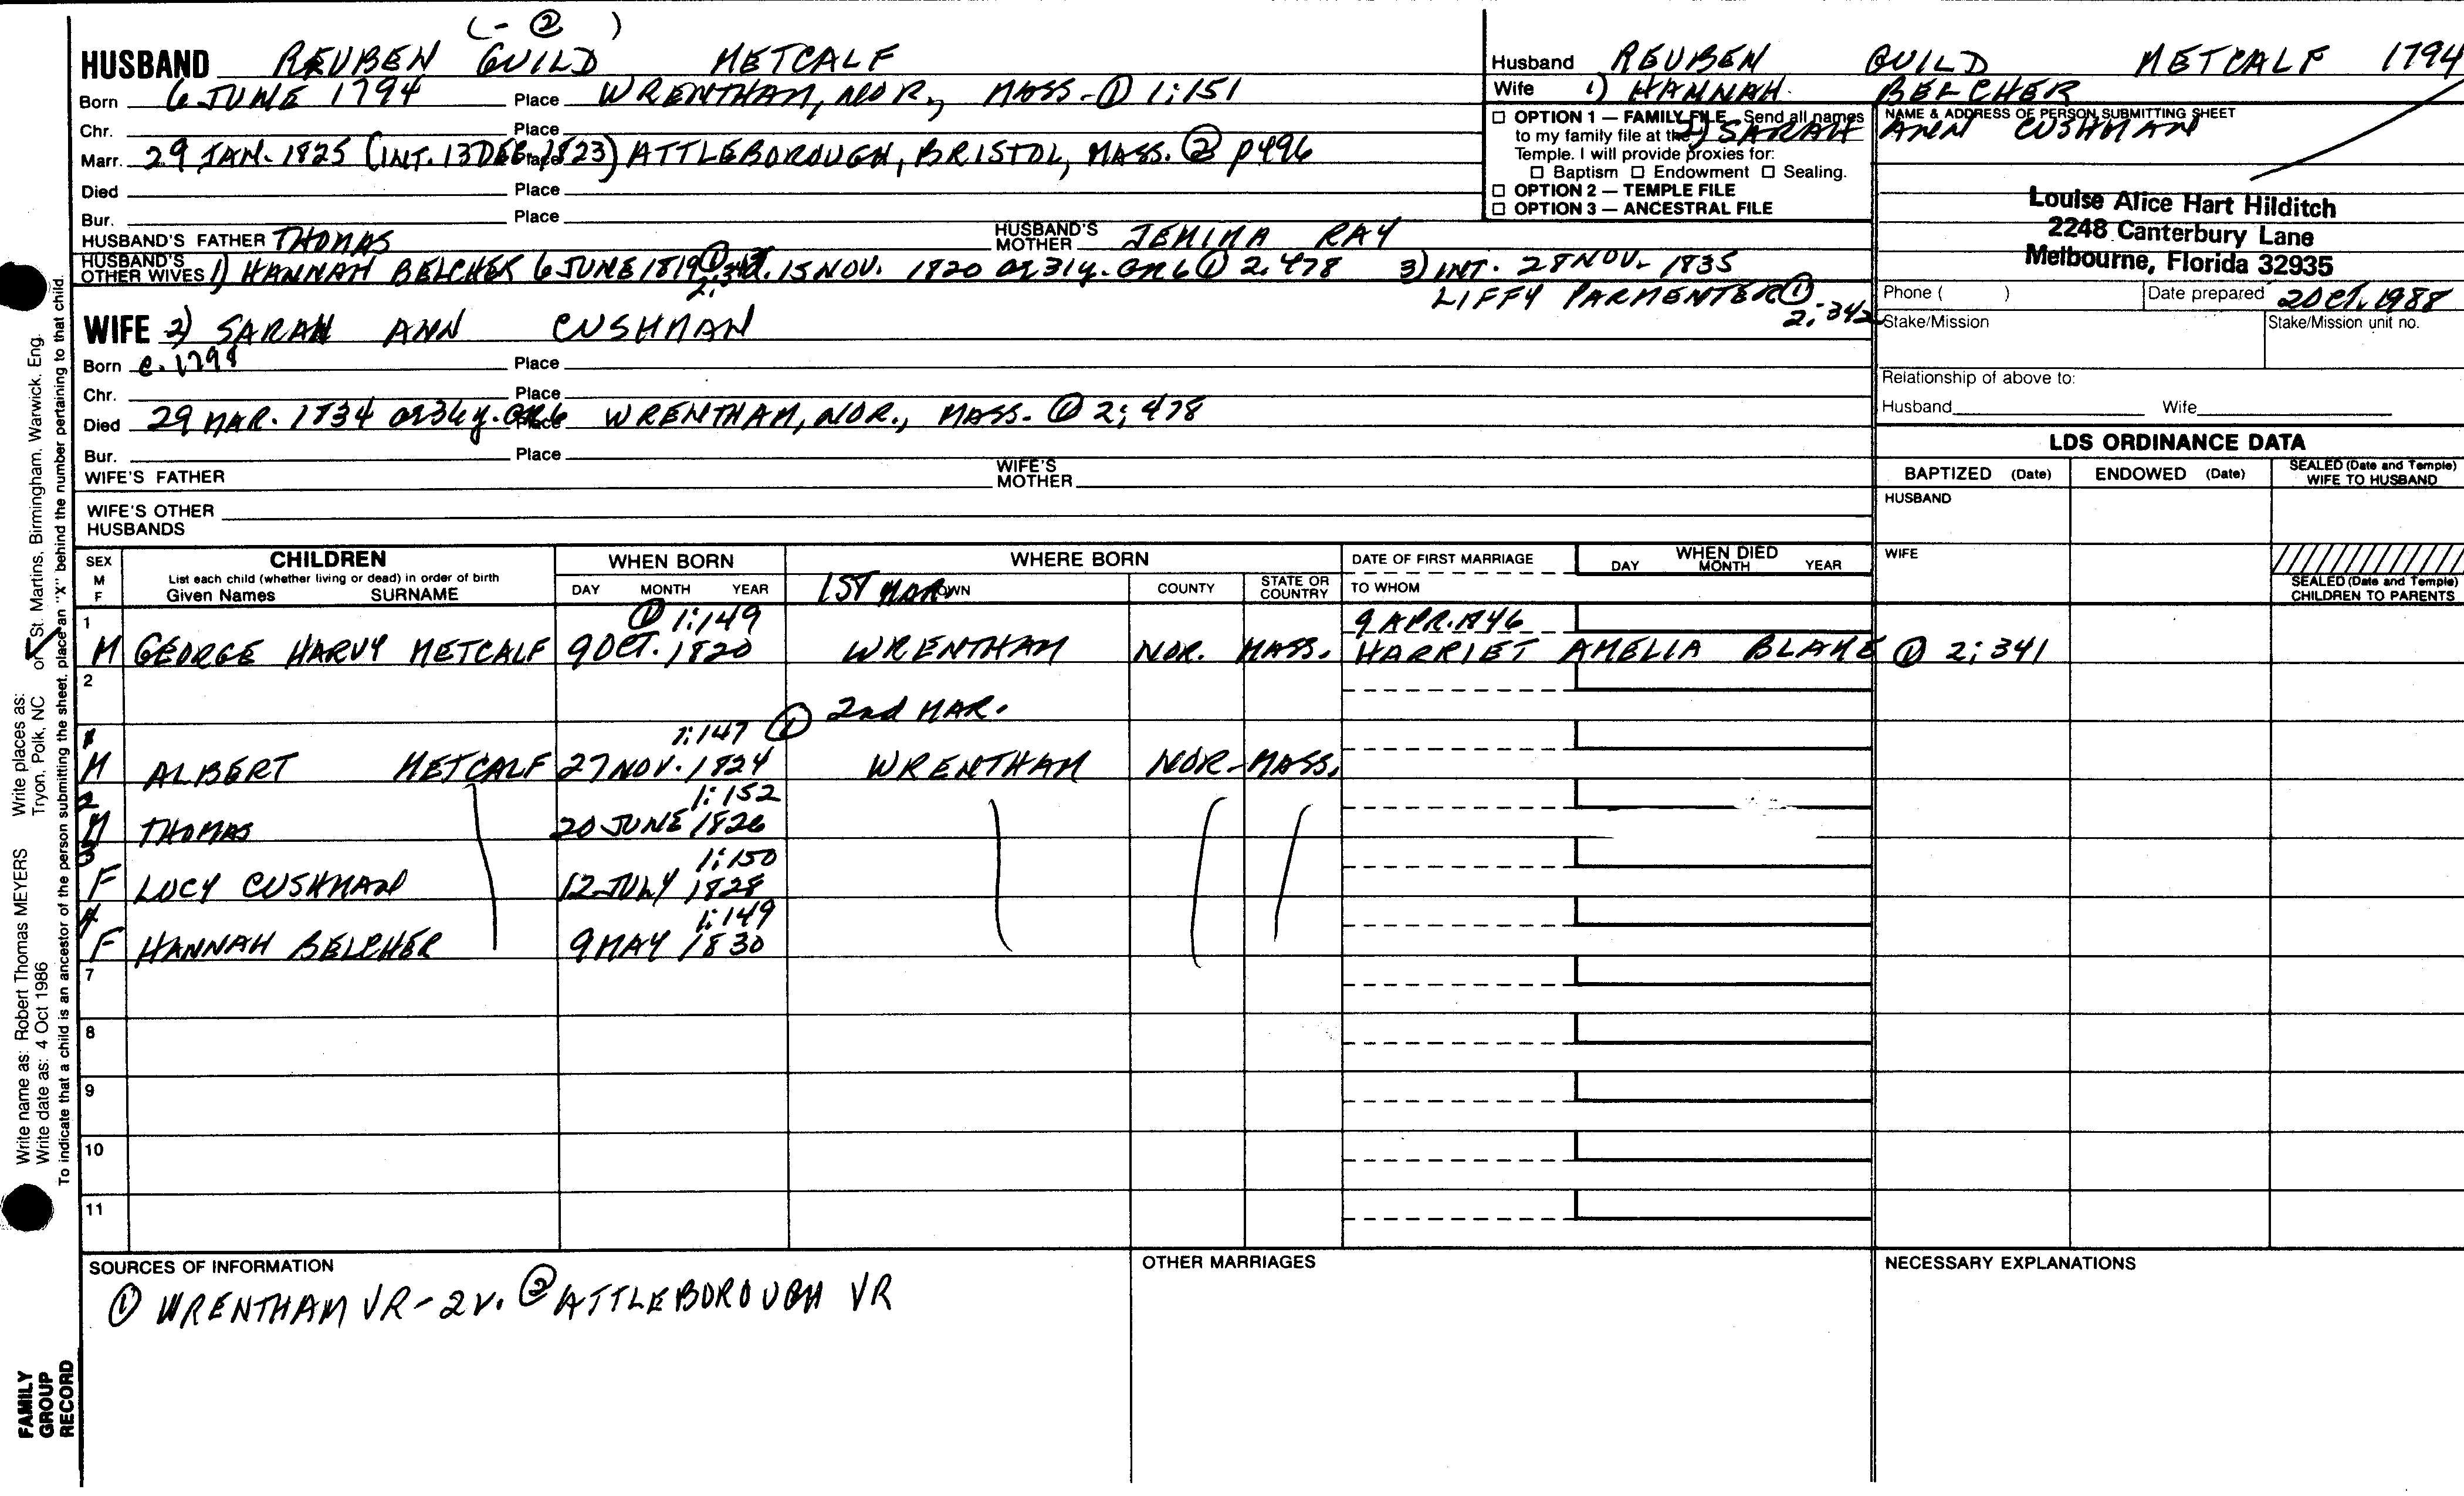 (- ② )
HUSBAND REUBEN GUILD METCALF
Born 6 JUNE 1794 Place WRENTHAM, NOR., MASS. ① 1:151
Chr. Place
Marr. 29 JAN. 1825 (INT. 13 DEC. 1823) Place ATTLEBOROUGH, BRISTOL, MASS. ② p496
Died Place
Bur. Place
HUSBAND'S FATHER THOMAS HUSBAND'S MOTHER JEMIMA RAY
HUSBAND'S OTHER WIVES 1) HANNAH BELCHER 6 JUNE 1819 ① 2:342 d. 15 NOV. 1820 ae 31y. GR6 ① 2:478 3) INT. 28 NOV. 1835
LIFFY PARMENTER ① 2:342
WIFE 2) SARAH ANN CUSHMAN
Born c. 1798 Place
Chr. Place
Died 29 MAR. 1834 ae 36y. GR6 Place WRENTHAM, NOR., MASS. ① 2:478
Bur. Place
WIFE'S FATHER WIFE'S MOTHER
WIFE'S OTHER HUSBANDS
Husband REUBEN GUILD METCALF 1794
Wife 1) HANNAH BELCHER
2) SARAH ANN CUSHMAN
☐ OPTION 1 — FAMILY FILE Send all names
to my family file at the
Temple. I will provide proxies for:
☐ Baptism ☐ Endowment ☐ Sealing.
☐ OPTION 2 — TEMPLE FILE
☐ OPTION 3 — ANCESTRAL FILE
NAME & ADDRESS OF PERSON SUBMITTING SHEET
Louise Alice Hart Hilditch
2248 Canterbury Lane
Melbourne, Florida 32935
Phone ( ) Date prepared 2 OCT. 1988
Stake/Mission Stake/Mission unit no.
Relationship of above to:
Husband Wife
LDS ORDINANCE DATA
BAPTIZED (Date) ENDOWED (Date) SEALED (Date and Temple) WIFE TO HUSBAND
HUSBAND
WIFE
SEALED (Date and Temple) CHILDREN TO PARENTS
SEX M F CHILDREN WHEN BORN WHERE BORN DATE OF FIRST MARRIAGE WHEN DIED
List each child (whether living or dead) in order of birth
Given Names SURNAME DAY MONTH YEAR TOWN COUNTY STATE OR COUNTRY TO WHOM DAY MONTH YEAR
1ST MAR.
1 ① 1:149 9 APR. 1846
M GEORGE HARVY METCALF 9 OCT. 1820 WRENTHAM NOR. MASS. HARRIET AMELIA BLAKE ① 2:341
2
2nd MAR.
1 1:147 ①
M ALBERT METCALF 27 NOV. 1824 WRENTHAM NOR. MASS.
2 1:152
M THOMAS 20 JUNE 1826
3 1:150
F LUCY CUSHMAN 12 JULY 1828
4 1:149
F HANNAH BELCHER 9 MAY 1830
7
8
9
10
11
SOURCES OF INFORMATION OTHER MARRIAGES NECESSARY EXPLANATIONS
① WRENTHAM VR-2v. ② ATTLEBOROUGH VR
FAMILY GROUP RECORD
Write name as: Robert Thomas MEYERS Write places as: St. Martins, Birmingham, Warwick, Eng.
Write date as: 4 Oct 1986 Tryon, Polk, NC or
To indicate that a child is an ancestor of the person submitting the sheet, place an "X" behind the number pertaining to that child.